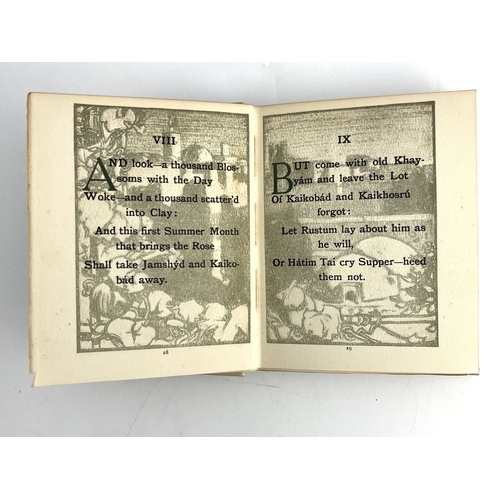 VIII
AND look—a thousand Blos-
soms with the Day
Woke—and a thousand scatter'd
into Clay:
And this first Summer Month
that brings the Rose
Shall take Jamshýd and Kaiko-
bád away.
28
IX
BUT come with old Khay-
yám and leave the Lot
Of Kaikobád and Kaikhosrú
forgot:
Let Rustum lay about him as
he will,
Or Hátim Tai cry Supper—heed
them not.
29